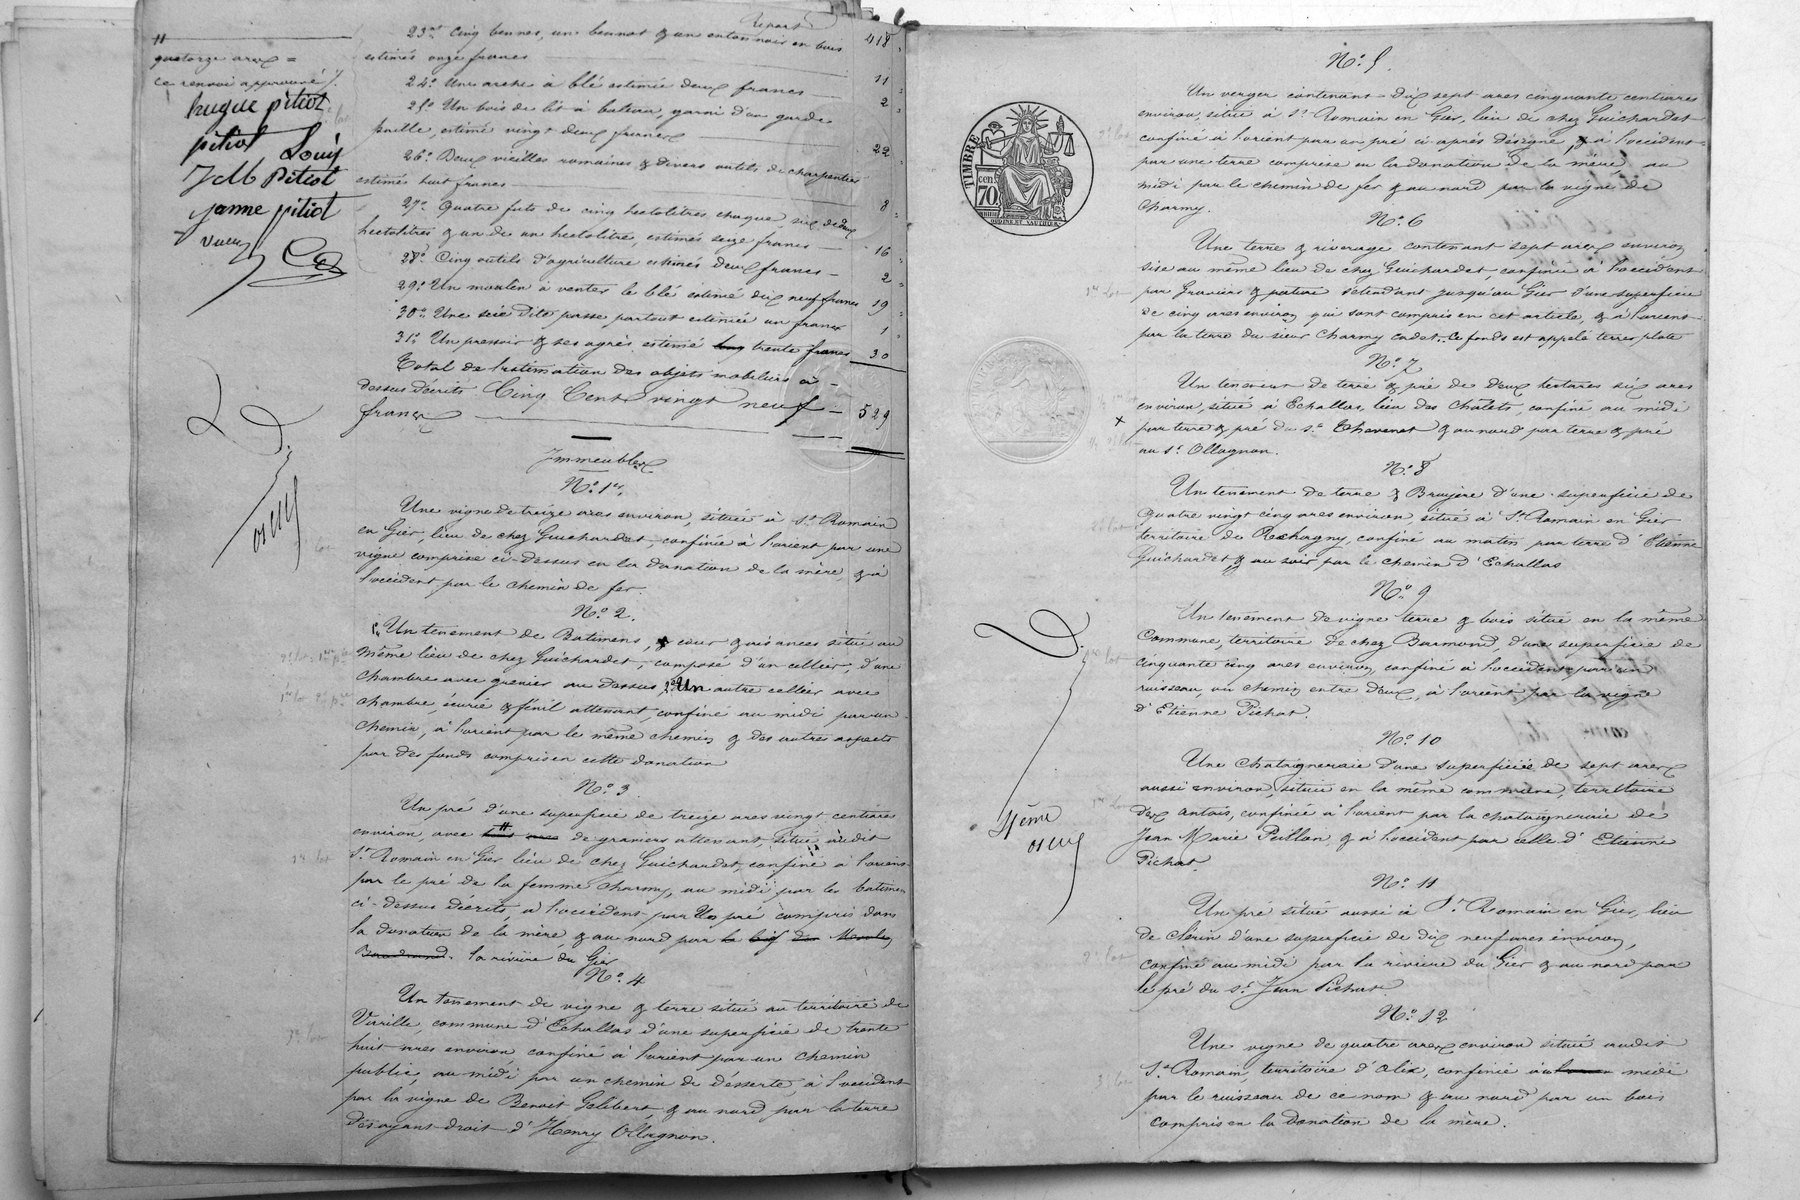 Report 418
23° Cinq bennes, un bennot & un entonnoir en bois
estimés onze francs 11
24° Une arche à blé estimée deux francs 2
25° Un bois de lit à bateau, garni d'un garde
paille, estimé vingt deux francs 22
26° Deux vieilles romaines & divers outils de charpentier
estimés huit francs 8
27° Quatre futs de cinq hectolitres chaque, six de deux
hectolitres & un de un hectolitre, estimés seize francs 16
28° Cinq outils d'agriculture estimés deux francs 2
29° Un moulin à venter le blé estimé dix neuf francs 19
30° Une scie dite passe partout estimée un franc 1
31° Un pressoir & ses agrès estimé trente francs 30
Total de l'estimation des objets mobiliers ci-
dessus décrits Cinq Cent vingt neuf
francs 529
quatorze ares =
ce renvoi approuvé
hugue pitiot
pitiot Louis
JM Pitiot
janne pitiot
Immeubles
N° 1er
Une vigne de treize ares environ, située à St Romain
en Gier, lieu de chez Guichardet, confinée à l'orient par une
vigne comprise ci-dessus en la donation de la mère, & à
l'occident par le chemin de fer.
N° 2.
1° Un tenement de Batimens, cour & aisances situé au
même lieu de chez Guichardet, composé d'un cellier, d'une
chambre avec grenier au dessus, 2° Un autre cellier avec
chambre, écurie & fenil attenant, confiné au midi par un
chemin, à l'orient par le même chemin & des autres aspects
par des fonds compris en cette donation
N° 3
Un pré d'une superficie de treize ares vingt centiares
environ, avec de graviers attenant, situé audit
St Romain en Gier lieu de chez Guichardet, confiné à l'orient
par le pré de la femme Charmy, au midi par les batimens
ci-dessus décrits, à l'occident par Un pré compris dans
la donation de la mère, & au nord par le bief du Moulin
la rivière du Gier
N° 4
Un tenement de vigne & terre situé au territoire de
Virrille, commune d'Echallas d'une superficie de trente
huit ares environ confiné à l'orient par un chemin
public, au midi par un chemin de desserte, à l'occident
par la vigne de Benoit Gelibert, & au nord par la terre
des ayant-droit d'Henry Ollagnon.
N° 5
TIMBRE
cen.
70.
Un verger contenant dix sept ares cinquante centiares
environ, situé à St Romain en Gier, lieu de chez Guichardet
confiné à l'orient par un pré ci après désigné, & à l'occident
par une terre comprise en la donation de la mère, au
midi par le chemin de fer & au nord par la vigne de
Charmy.
N° 6
Une terre & rivorage contenant sept ares environ
sise au même lieu de chez Guichardet, confinée à l'occident
par graviers & pature s'etendant jusqu'au Gier d'une superficie
de cinq ares environ qui sont compris en cet article, & à l'orient
par la terre du sieur Charmy cadet. Ce fonds est appelé terres plate
N° 7
Un tenement de terre & pré de deux hectares six ares
environ, situé à Echallas, lieu des Châlets, confiné au midi
par terre & pré du sr Thevenet & au nord par terre & pré
au sr Ollagnon.
N° 8
Un tenement de terre & Bruyère d'une superficie de
quatre vingt cinq ares environ, situé à St Romain en Gier
territoire de Rochagny, confiné au matin par terre d'Etienne
Guichardet, & au soir par le chemin d'Echallas
N° 9
Un tenement de vigne terre & bois situé en la même
Commune, territoire de chez Barmond, d'une superficie de
cinquante cinq ares environ, confiné à l'occident par un
ruisseau, un chemin entre deux, à l'orient par la vigne
d'Etienne Pichat.
N° 10
Une Chataigneraie d'une superficie de sept ares
aussi environ, située en la même commune, territoire
des Antois, confinée à l'orient par la chataigneraie de
Jean Marie Peillon, & à l'occident par celle d'Etienne
Pichat.
4ème
N° 11
Un pré situé aussi à St Romain en Gier, lieu
de Clérin d'une superficie de dix neuf ares environ,
confiné au midi par la rivière du Gier & au nord par
le pré du sr Jean Pichat.
N° 12
Une vigne de quatre ares environ située audit
St Romain, territoire d'Alix, confinée au midi
par le ruisseau de ce nom & au nord par un bois
compris en la Donation de la mère.